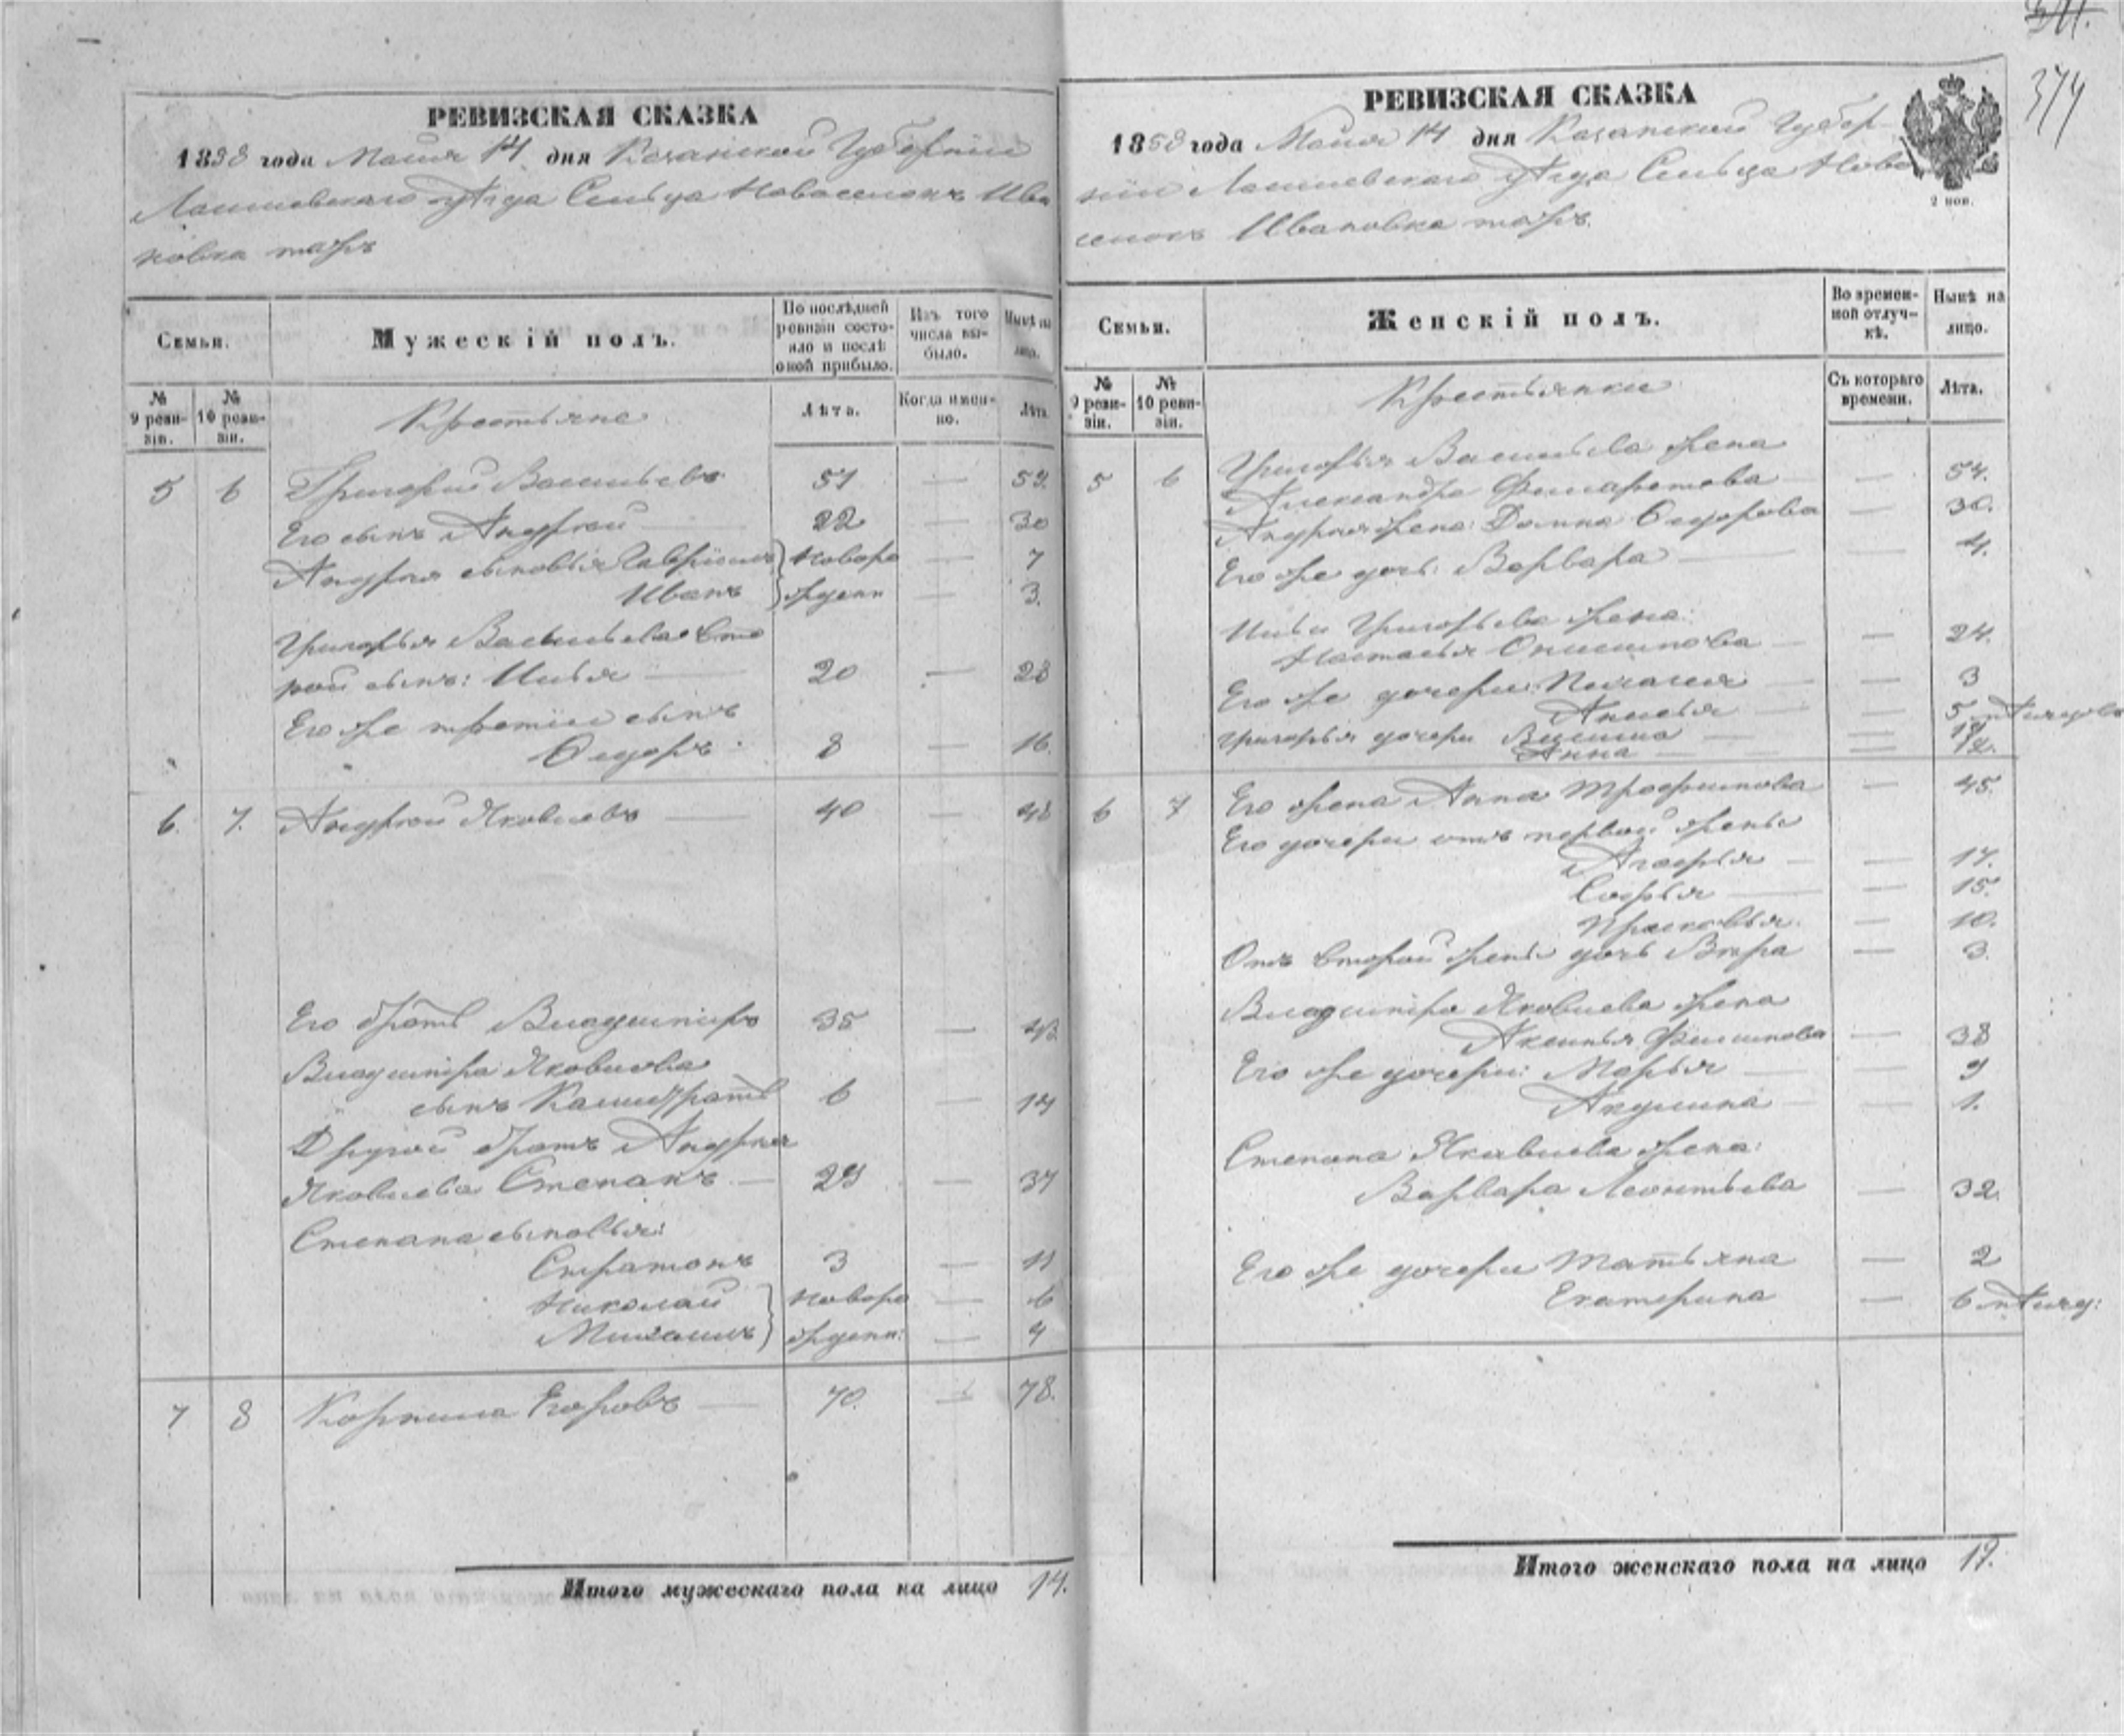 РЕВИЗСКАЯ СКАЗКА
1858 года Маія 14 дня Казанской Губерніи
Лаишевскаго уѣзда Сельца Новоселокъ Ива
новка тожъ
Семьи.
Мужескій полъ.
По послѣдней ревизіи состояло и послѣ оной прибыло.
Изъ того числа выбыло.
Нынѣ на лицо.
№ 9 ревизіи.
№ 10 ревизіи.
Крестьяне
Лѣта.
Когда именно.
Лѣта.
5 6 Григорій Васильевъ 51 — 59.
Его сынъ Андрей 22 — 30
Андрея сыновья Гавріилъ новоро — 7
Иванъ жденн — 3.
Григорья Васильева вто
рой сынъ: Илья 20 — 28
Его же третіи сынъ
Ѳедоръ 8 — 16.
6. 7. Андрей Яковлевъ 40 — 48
Его братъ Владиміръ 35 — 43.
Владиміра Яковлева
сынъ Калистратъ 6 — 14
Другой братъ Андрея
Яковлева Степанъ 29 — 37
Степана сыновья:
Стратонъ 3 — 11
Николай новоро — 6
Михаилъ жденн: — 4
7 8 Корнила Егоровъ 70. — 78.
Итого мужескаго пола на лицо 14.
374
РЕВИЗСКАЯ СКАЗКА
1858 года Маія 14 дня Казанской Губер
ніи Лаишевскаго уѣзда Сельца Ново
селокъ Ивановка тожъ.
2 пов.
Семьи.
Женскій полъ.
Во временной отлучкѣ.
Нынѣ на лицо.
№ 9 ревизіи.
№ 10 ревизіи.
Крестьянки
Съ котораго времени.
Лѣта.
5 6 Григорья Васильева жена
Александра Филаретова — 54.
Андрея жена: Домна Ѳедорова — 30.
Его же дочь: Варвара — 4.
Ильи Григорьева жена:
Настасья Онисимова — 24.
Его же дочери: Пелагея — 3
Анисья — 5 мѣсяцовъ
Григорья дочери Василиса —
Анна — 12.
6 7 Его жена Анна Трофимова — 45.
Его дочери отъ первой жены
Агафья — 17.
Софья — 15.
Прасковья — 10.
Отъ второй жены дочь Вѣра — 3.
Владиміра Яковлева жена
Аксинья Филипова — 38
Его же дочери: Марья — 9
Акулина — 1.
Степана Яковлева жена:
Варвара Леонтьева — 32.
Его же дочери Татьяна — 2
Екатерина — 6 мѣсяц:
Итого женскаго пола на лицо 17.